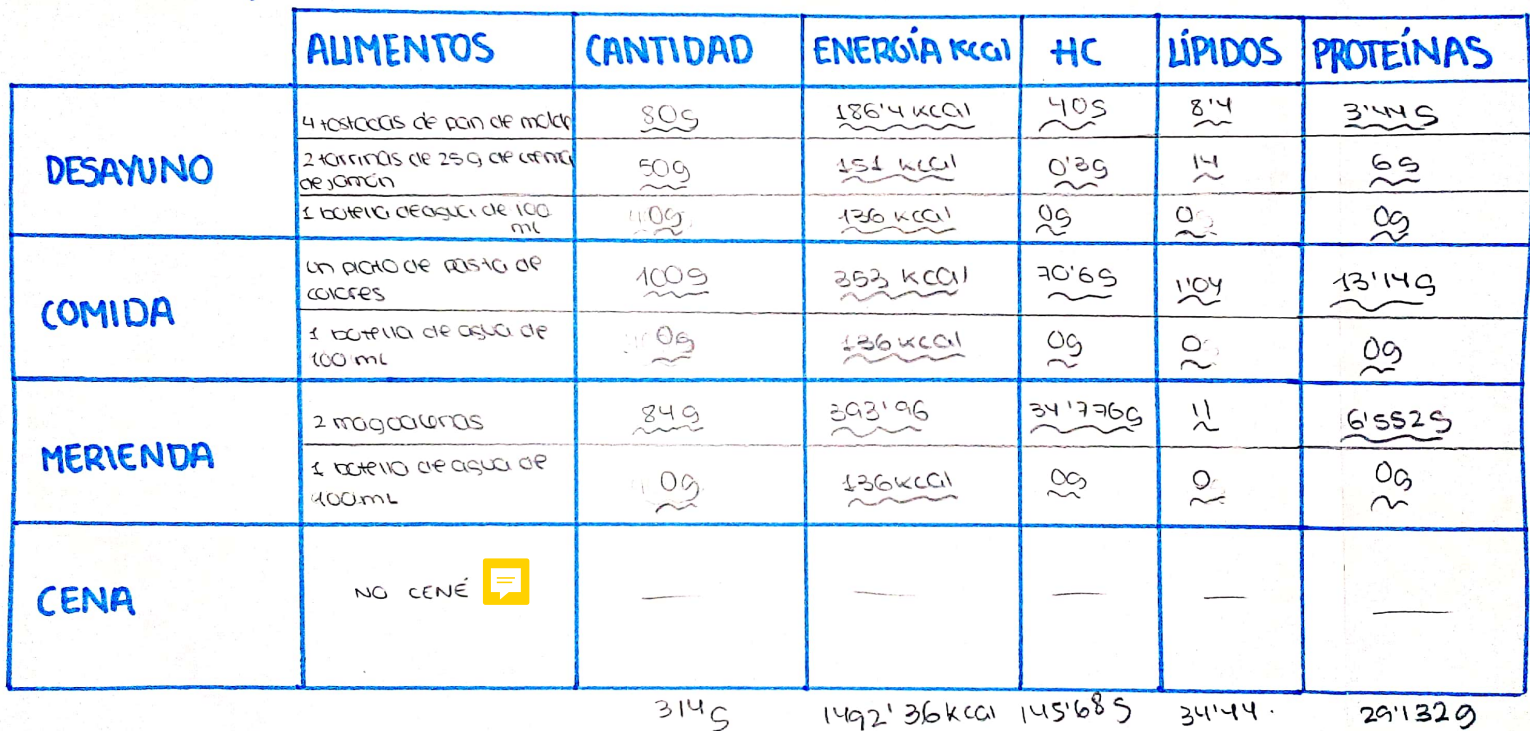 ALIMENTOS CANTIDAD ENERGÍA Kcal HC LÍPIDOS PROTEÍNAS
DESAYUNO
4 tostadas de pan de molde 80g 186'4 kcal 40g 8'4 3'44g
2 tarrinas de 25g de crema
de jamón
50g 151 kcal 0'3g 14 6g
1 botella de agua de 100
ml
0g 136 kcal 0g 0 0g
COMIDA
un plato de pasta de
colores
100g 353 kcal 70'6g 1'04 13'14g
1 botella de agua de
100 ml
0g 136 kcal 0g 0 0g
MERIENDA
2 magdalenas 84g 393'96 34'776g 11 6'552g
1 botella de agua de
100 mL
0g 136 kcal 0g 0 0g
CENA
NO CENÉ — — — — —
314g 1492'36 kcal 145'68g 34'44. 29'132g